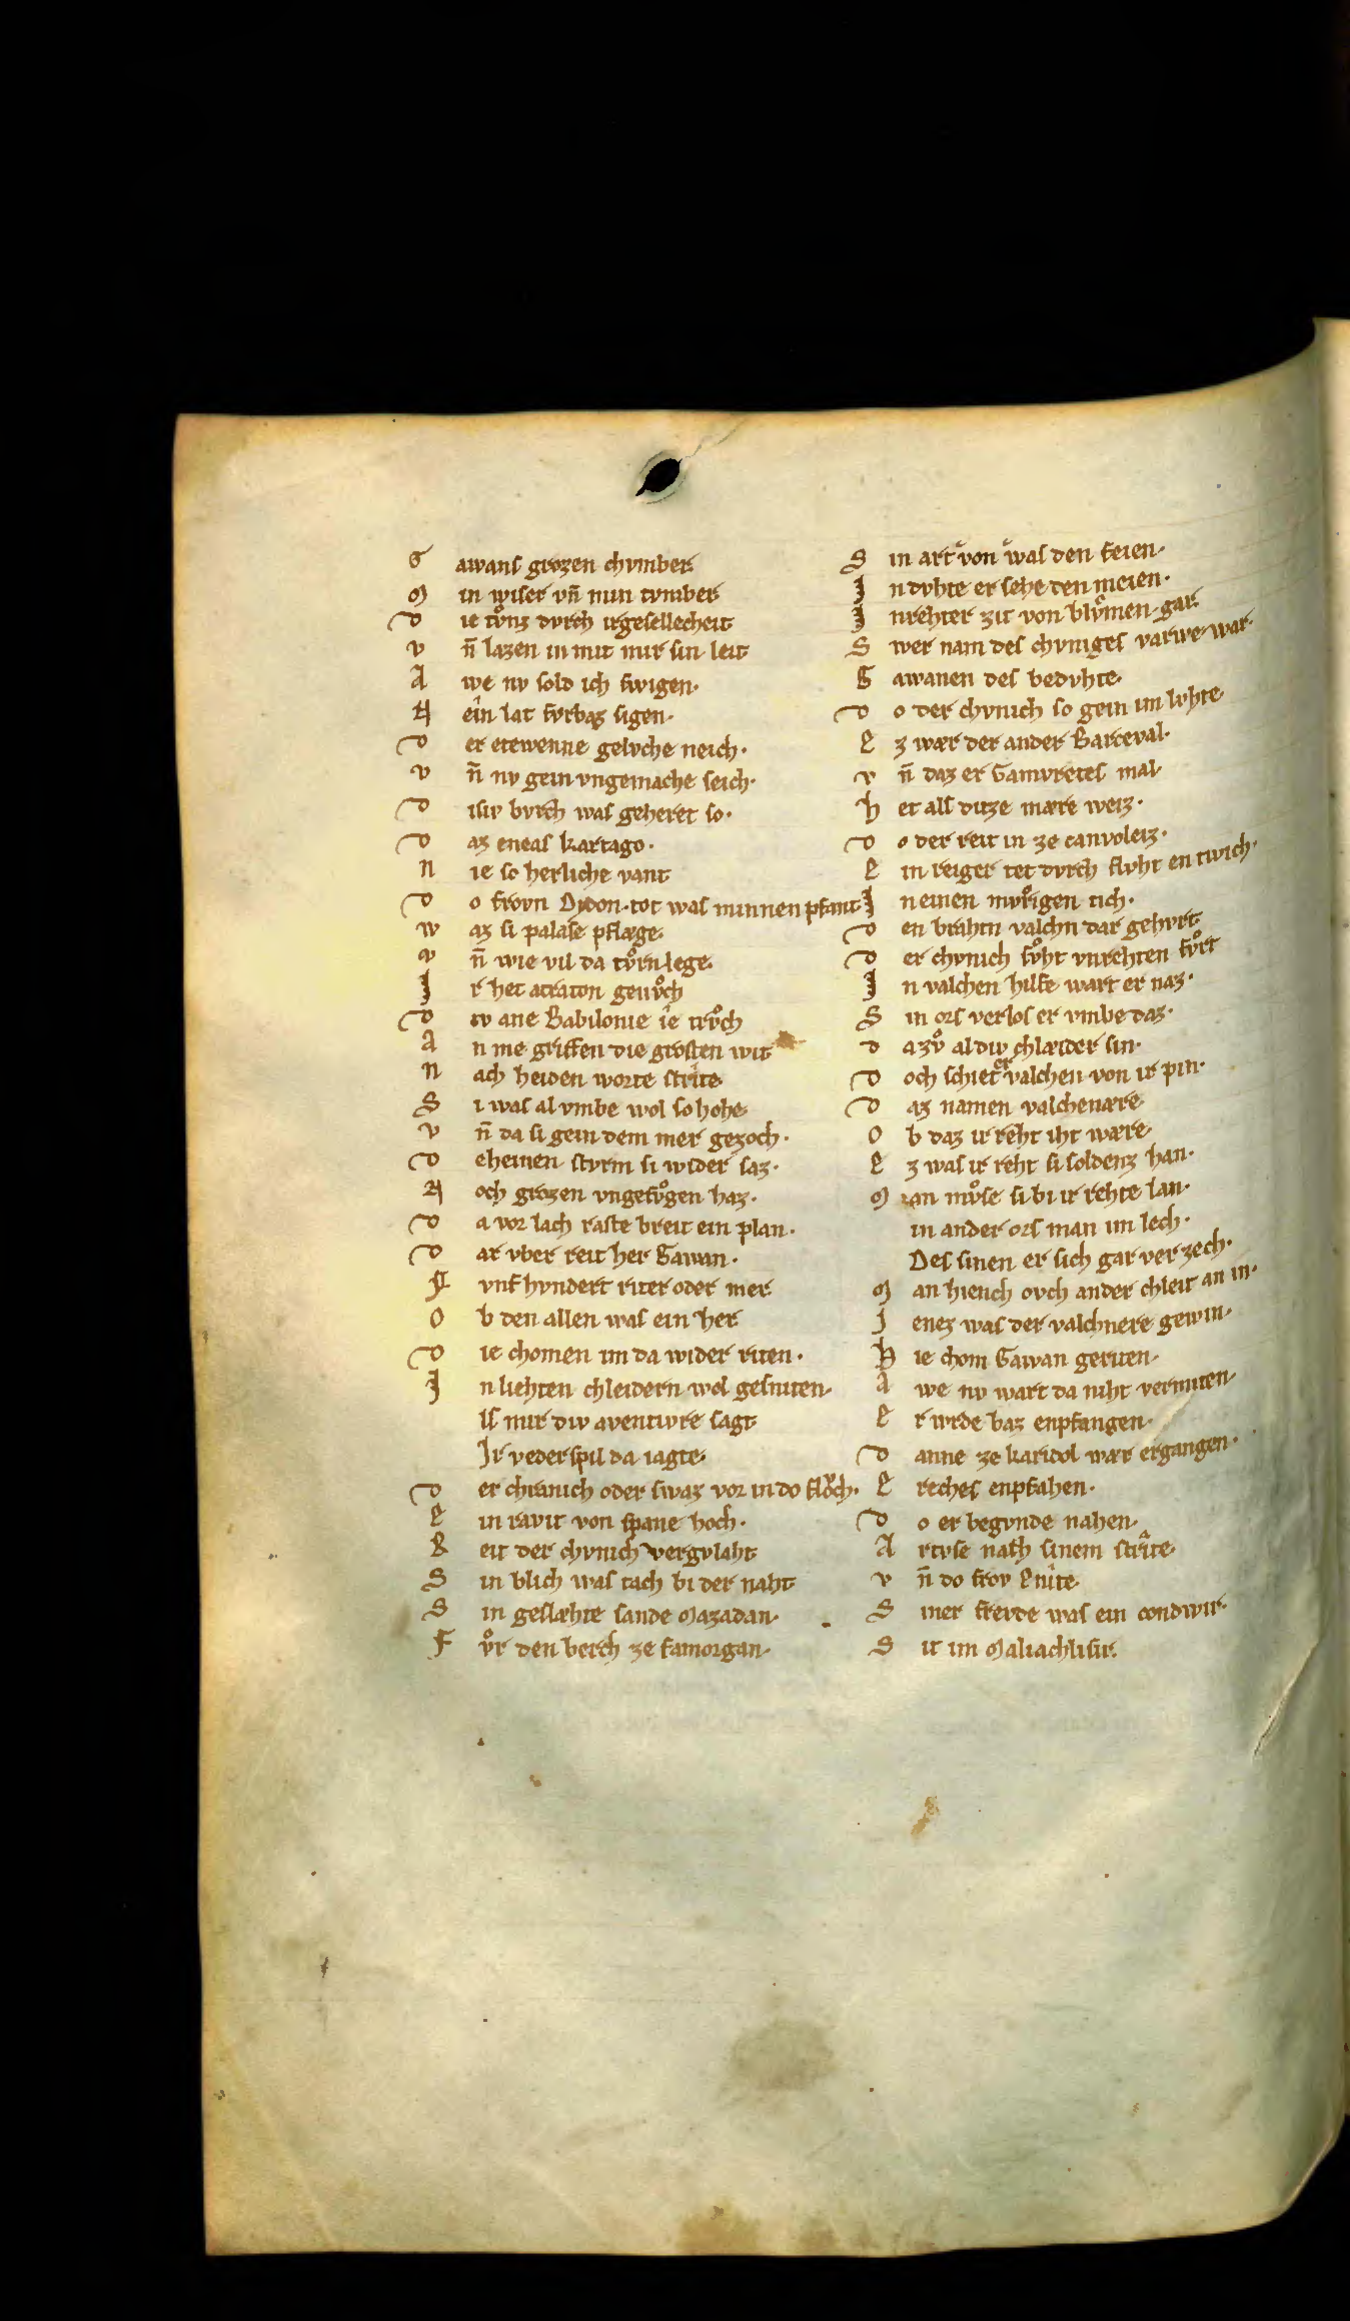 G awans grozen chvmber
M in wiser vn̄ min tvmber
D ie tvͦnz dvrch irgesellecheit
V n̄ lazen in mit mir sin leit
A we nv sold ich swigen·
N ein lat fvrbaz sigen·
D er etewenne gelvche neich·
V n̄ nv gein vngemache seich·
D isiv bvrch was geheret so·
D az eneas kartago·
N ie so herliche vant
D o frovn Dydon·tot was minnen pfant
W az si palase pflæge·
V n̄ wie vil da tvͦrn lege·
I r het acraton genvͦch
D iv ane Babilonie ie trvͦch
A n me griffen die grosten wit
N ach heiden worte strite·
S i was al vmbe wol so hohe·
V n̄ da si gein dem mer gezoch·
D eheinen stvrm si wider saz·
N och grozen vngefvͦgen haz·
D a vor lach raste breit ein plan·
D ar vber reit her Gawan·
F vnf hvndert riter oder mer
O b den allen was ein her
D ie chomen im da wider riten·
I n liehten chleidern wol gesniten·
ls mir div aventivre sagt
Ir vederspil da iagte·
D er chranich oder swaz vor in do flovch·
E in ravit von spane hoch·
R eit der chvnich vergvlaht
S in blich was tach bi der naht
S in geslæhte sande Mazadan·
F vͦr den berch ze famorgan·
S in art von was den feien·
I n dvhte er sehe den meien·
I nrehter zit von blvͦmen gar·
S wer nam des chvniges varwe war·
G awanen des bedvhte·
D o der chvnich so gein im lvhte·
E z wær der ander Barceval·
V n̄ daz er Gamvretes mal·
H et als ditze mære weiz·
D o der reit in ze canvoleiz·
E in reiger tet dvrch flvht en twich·
I neinen mvͦrigen tich·
D en brahtn valchn dar gehvrt·
D er chvnich svͦht vnrehten fvͦrt
I n valchen hilfe wart er naz·
S in ors verlos er vmbe daz·
D azvͦ al div chlæider sin·
D och schiet er valchen von ir pin·
D az namen valchenære·
O b daz ir reht iht wære·
E z was ir reht si soldenz han·
M an mvͦse si bi ir rehte lan·
in ander ors man im lech·
Des sinen er sich gar verzech·
M an hiench ovch ander chleit an in·
J enez was der valchnere gewin·
H ie chom Gawan geriten·
A we nv wart da niht vermiten·
E r wrde baz enpfangen·
D anne ze karidol wær ergangen·
E reches enpfahen·
D o er begvnde nahen·
A rtvse nach sinem strite·
V n̄ do frov Enite·
S iner frevde was ein condwir·
S it im Maliachlisir.